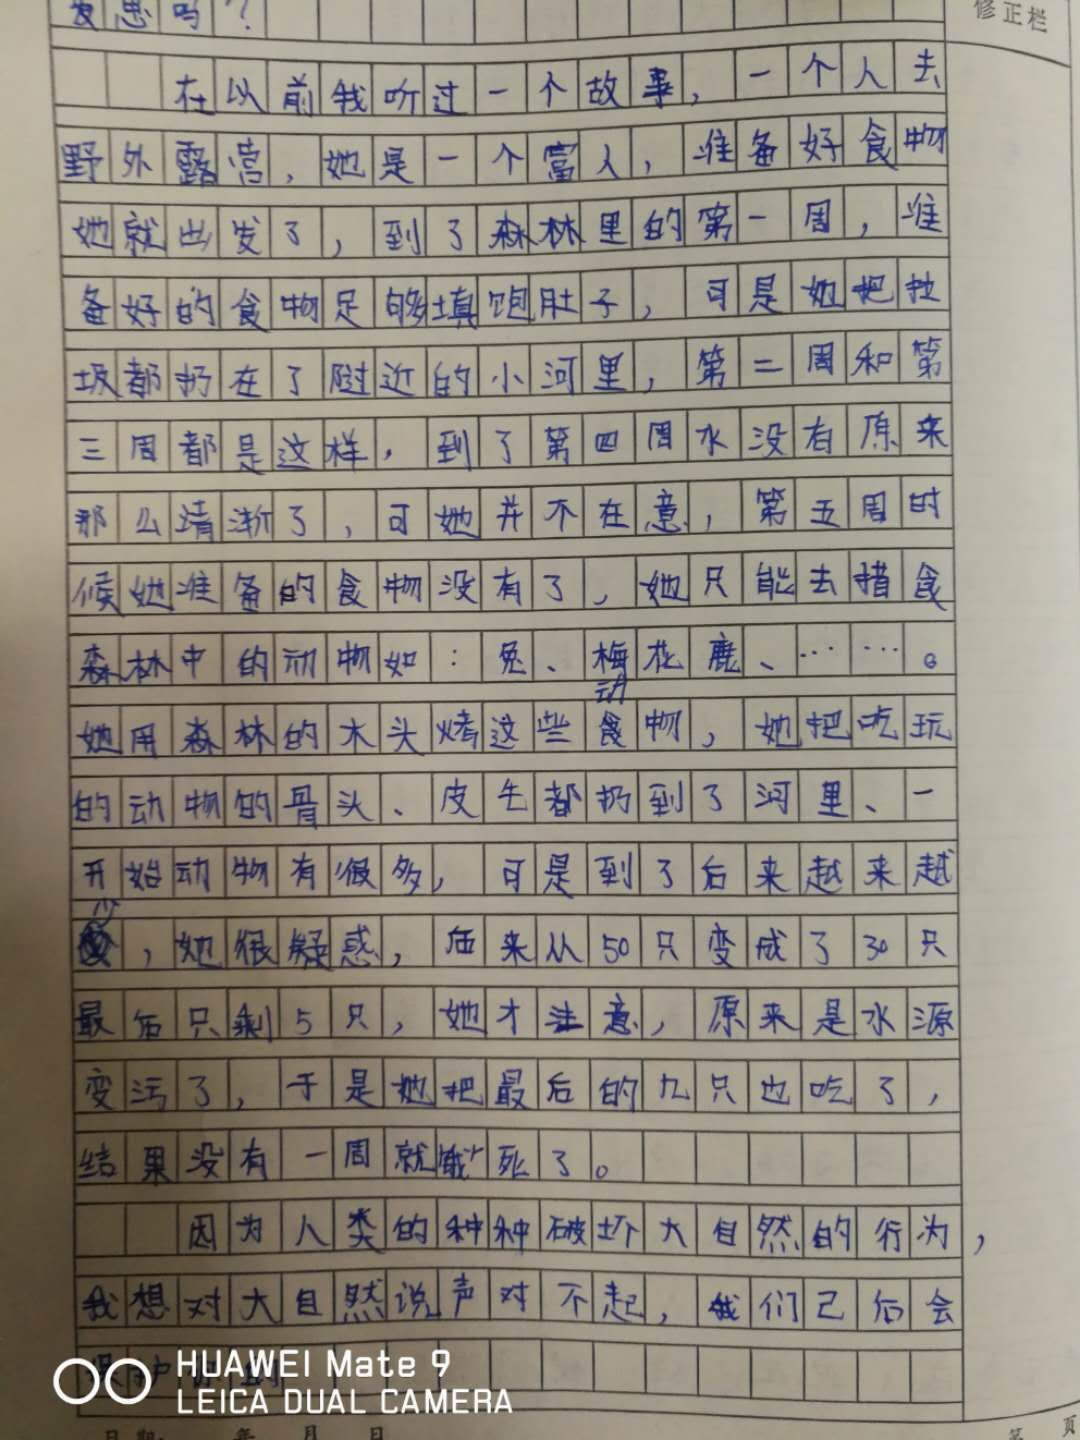 发思吗？
修正栏
在以前我听过一个故事，一个人去
野外露营，她是一个富人，准备好食物
她就出发了，到了森林里的第一周，准
备好的食物足够填饱肚子，可是她把拉
圾都扔在了附近的小河里，第二周和第
三周都是这样，到了第四周水没有原来
那么清澈了，可她并不在意，第五周的
候她准备的食物没有了，她只能去猎食
森林中的动物如：兔、梅花鹿、……。
她用森林的木头烤这些动物，她把吃玩
的动物的骨头、皮毛都扔到了河里、一
开始动物有很多，可是到了后来越来越
少，她很疑惑，后来从50只变成了30只
最后只剩5只，她才注意，原来是水源
变污了，于是她把最后的几只也吃了，
结果没有一周就饿死了。
因为人类的种种破坏大自然的行为，
我想对大自然说声对不起，我们己后会
保护
HUAWEI Mate 9
LEICA DUAL CAMERA
日期： 年 月 日
第 页